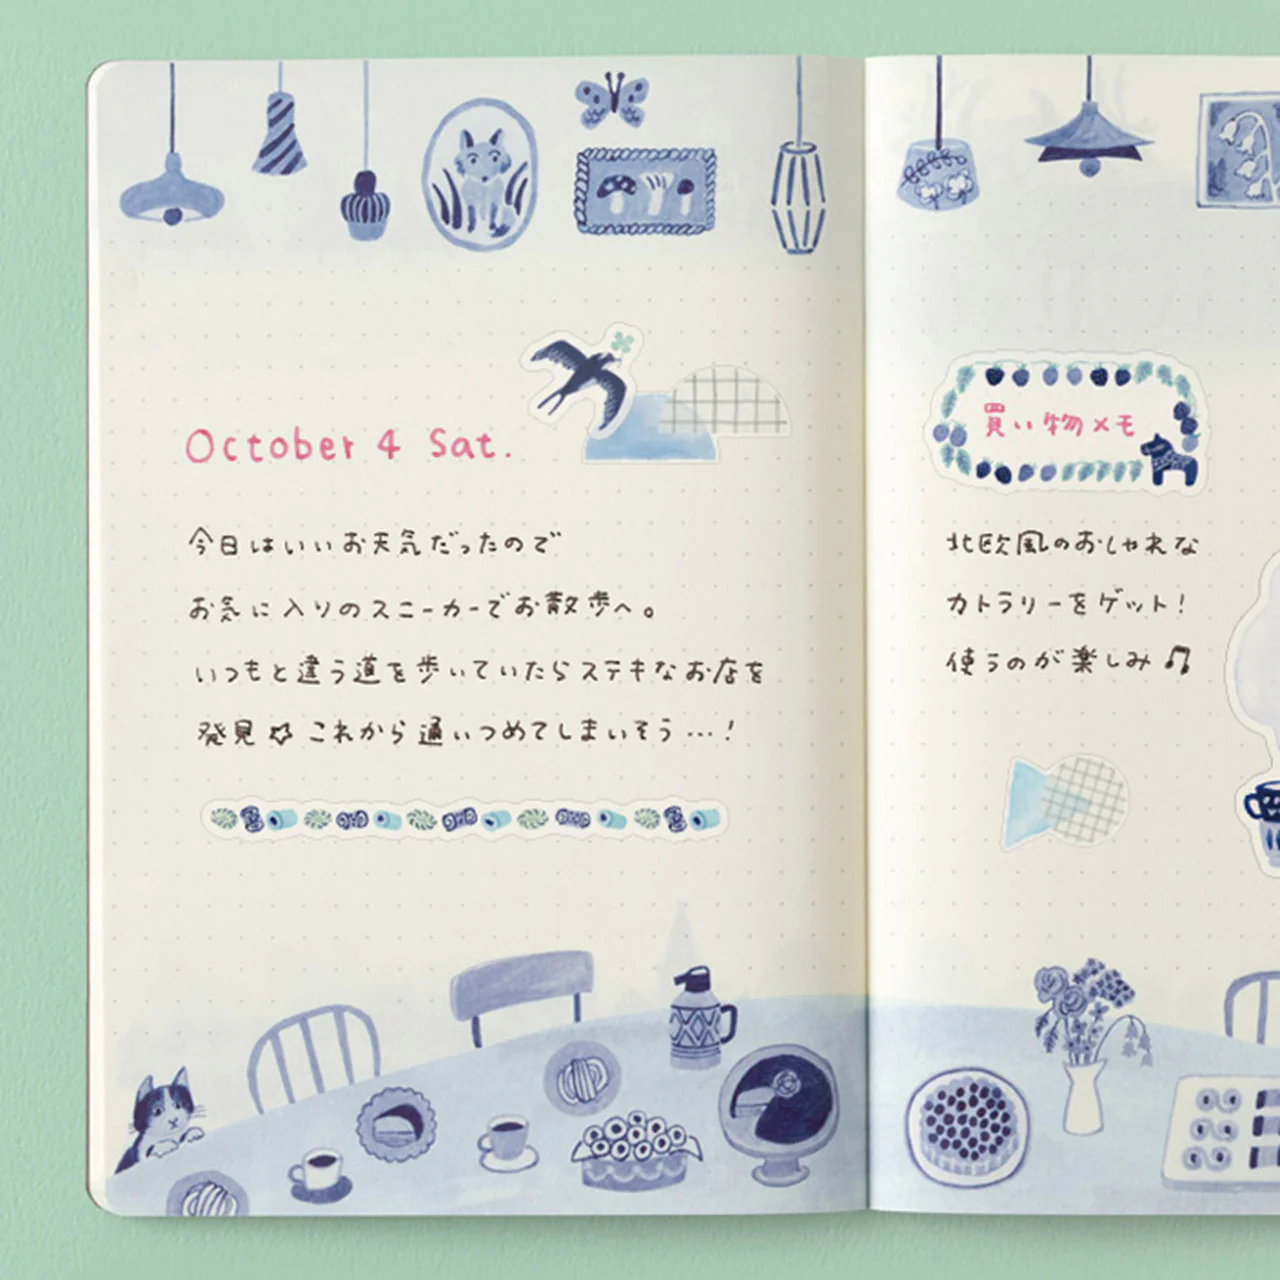 October 4 Sat.
今日はいいお天気だったので
お気に入りのスニーカーでお散歩へ。
いつもと違う道を歩いていたらステキなお店を
発見☆これから通いつめてしまいそう…！
買い物メモ
北欧風のおしゃれな
カトラリーをゲット！
使うのが楽しみ♫